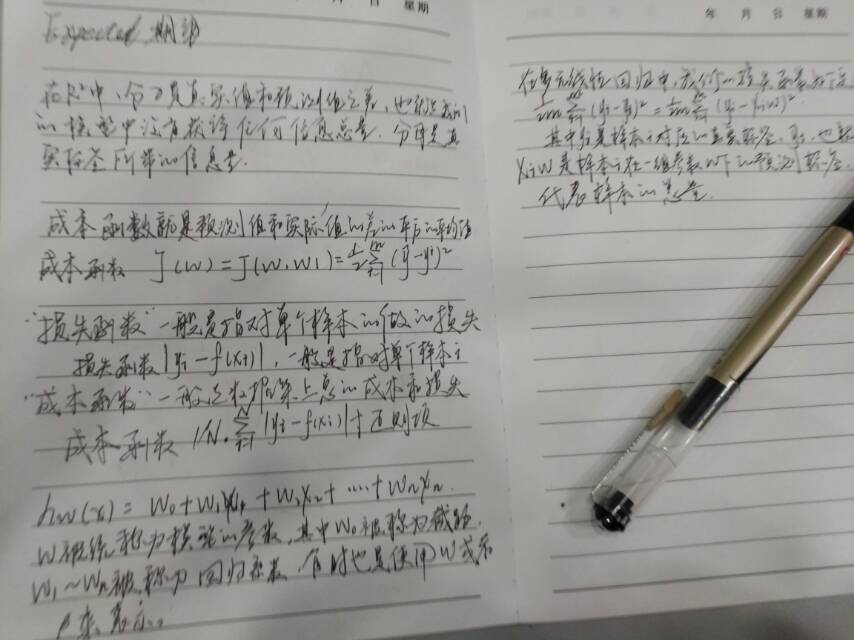 年 月 日 星期
Expected 期望
在R²中,分子是真实值和预测值之差,也就是我们
的模型中没有获得任何信息总量,分母是真
实标签所带的信息量.
成本函数就是预测值和实际值的差的平方的平均值
成本函数 J(w) = J(w, w1) =
"损失函数"一般是指对单个样本的做的损失
损失函数 |yi - f(xi)|,一般是指对单个样本i
"成本函数"一般是数据集上总的成本和损失
成本函数 1/N. ∑ |yi - f(xi)| + 正则项
hw(x) = w0 + w1x1 + w2x2 + ... + wnxn.
w被统称为模型的参数,其中w0被称为截距,
w1~wn被称为回归系数,有时也是使用w或者
β来表示。
年 月 日 星期
在多元线性回归中,我们的损失函数如下
其中yi是样本i对应的真实标签, ŷi,也就
Xiw是样本i在一组参数w下的预测标签,
代表样本的总量.